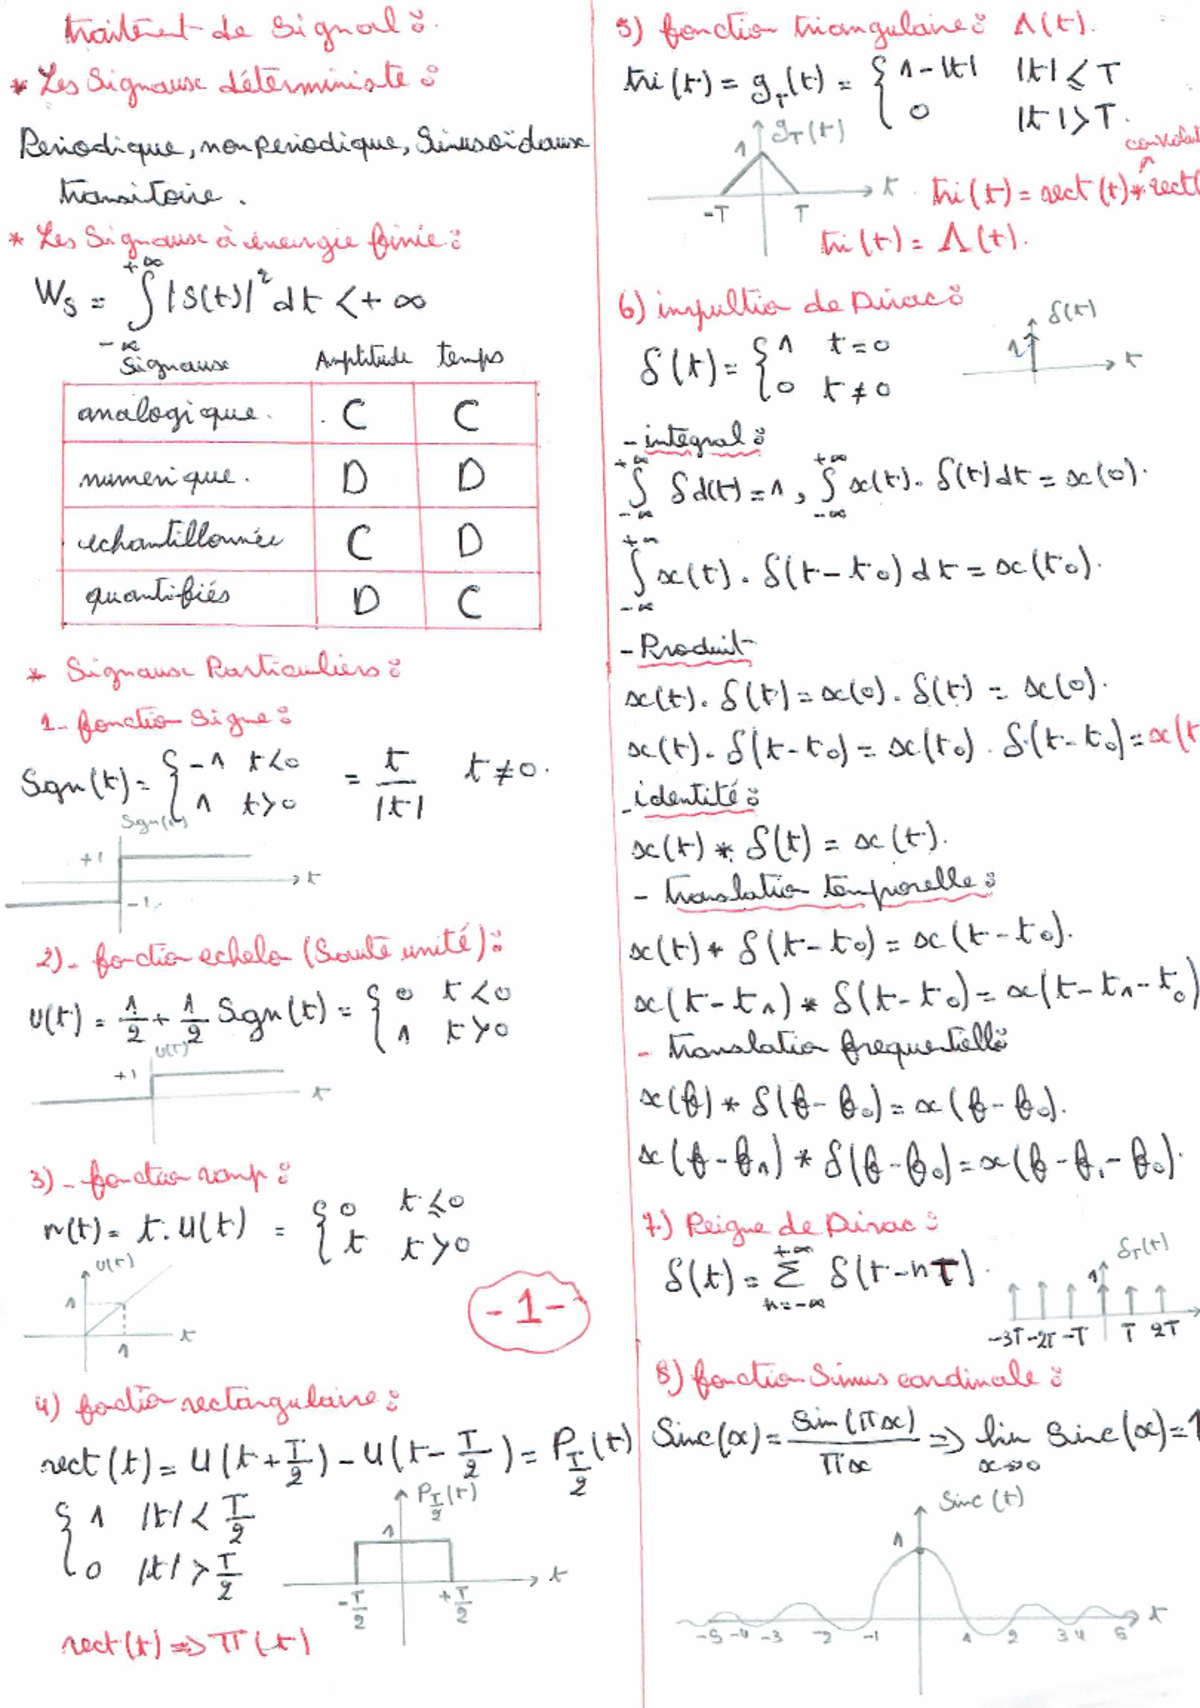 traitement de Signal :
* Les Signaux déterministe :
Periodique, non periodique, Sinusoïdaux
transitoire .
* Les Signaux à énergie finie :
W_S = ∫_{-∞}^{+∞} |S(t)|² dt < +∞
Signaux Amplitude temps
analogique . C C
numerique . D D
echantillonnée C D
quantifiés D C
* Signaux Particuliers :
1- fonction Signe :
Sgn(t) = { -1 t<0 ; 1 t>0 = t/|t| t ≠ 0 .
Sgn(t)
+1
t
-1
2) - fonction echelon (Saute unité) :
U(t) = 1/2 + 1/2 Sgn(t) = { 0 t<0 ; 1 t>0
U(t)
+1
t
3) - fonction ramp :
r(t) = t . U(t) = { 0 t ≤ 0 ; t t>0
U(t)
1
1
t
- 1 -
4) foction rectangulaire :
rect(t) = U(t + T/2) - U(t - T/2) = P_{T/2}(t)
{ 1 |t| < T/2 ; 0 |t| > T/2
P_{T/2}(t)
1
-T/2 +T/2 t
rect(t) => Π(t)
5) fonction triangulaire : Λ(t) .
tri(t) = g_T(t) = { 1 - |t| |t| ≤ T ; 0 |t| > T .
g_T(t)
1
-T T t
tri(t) = rect(t) * rect(
tri(t) = Λ(t) .
6) impultion de Dirac :
δ(t) = { 1 t = 0 ; 0 t ≠ 0
δ(t)
1
t
- intégral :
∫_{-∞}^{+∞} δd(t) = 1 , ∫_{-∞}^{+∞} x(t) . δ(t) dt = x(0) .
∫_{-∞}^{+∞} x(t) . δ(t - t0) dt = x(t0) .
- Produit
x(t) . δ(t) = x(0) . δ(t) = x(0) .
x(t) . δ(t - t0) = x(t0) . δ(t - t0) = x(t
- identité :
x(t) * δ(t) = x(t) .
- translation temporelle :
x(t) * δ(t - t0) = x(t - t0) .
x(t - t1) * δ(t - t0) = x(t - t1 - t0)
- translation frequentielle :
x(f) * δ(f - f0) = x(f - f0) .
x(f - f1) * δ(f - f0) = x(f - f1 - f0) .
7) Peigne de Dirac :
δ(t) = Σ_{n=-∞}^{+∞} δ(t - nT) .
δ_T(t)
1
-3T -2T -T T 2T
8) fonction Sinus cardinale :
Sinc(x) = Sin(Πx)/Πx => lim_{x→0} Sinc(x) = 1
Sinc(t)
1
-5 -4 -3 -2 -1 1 2 3 4 5 t